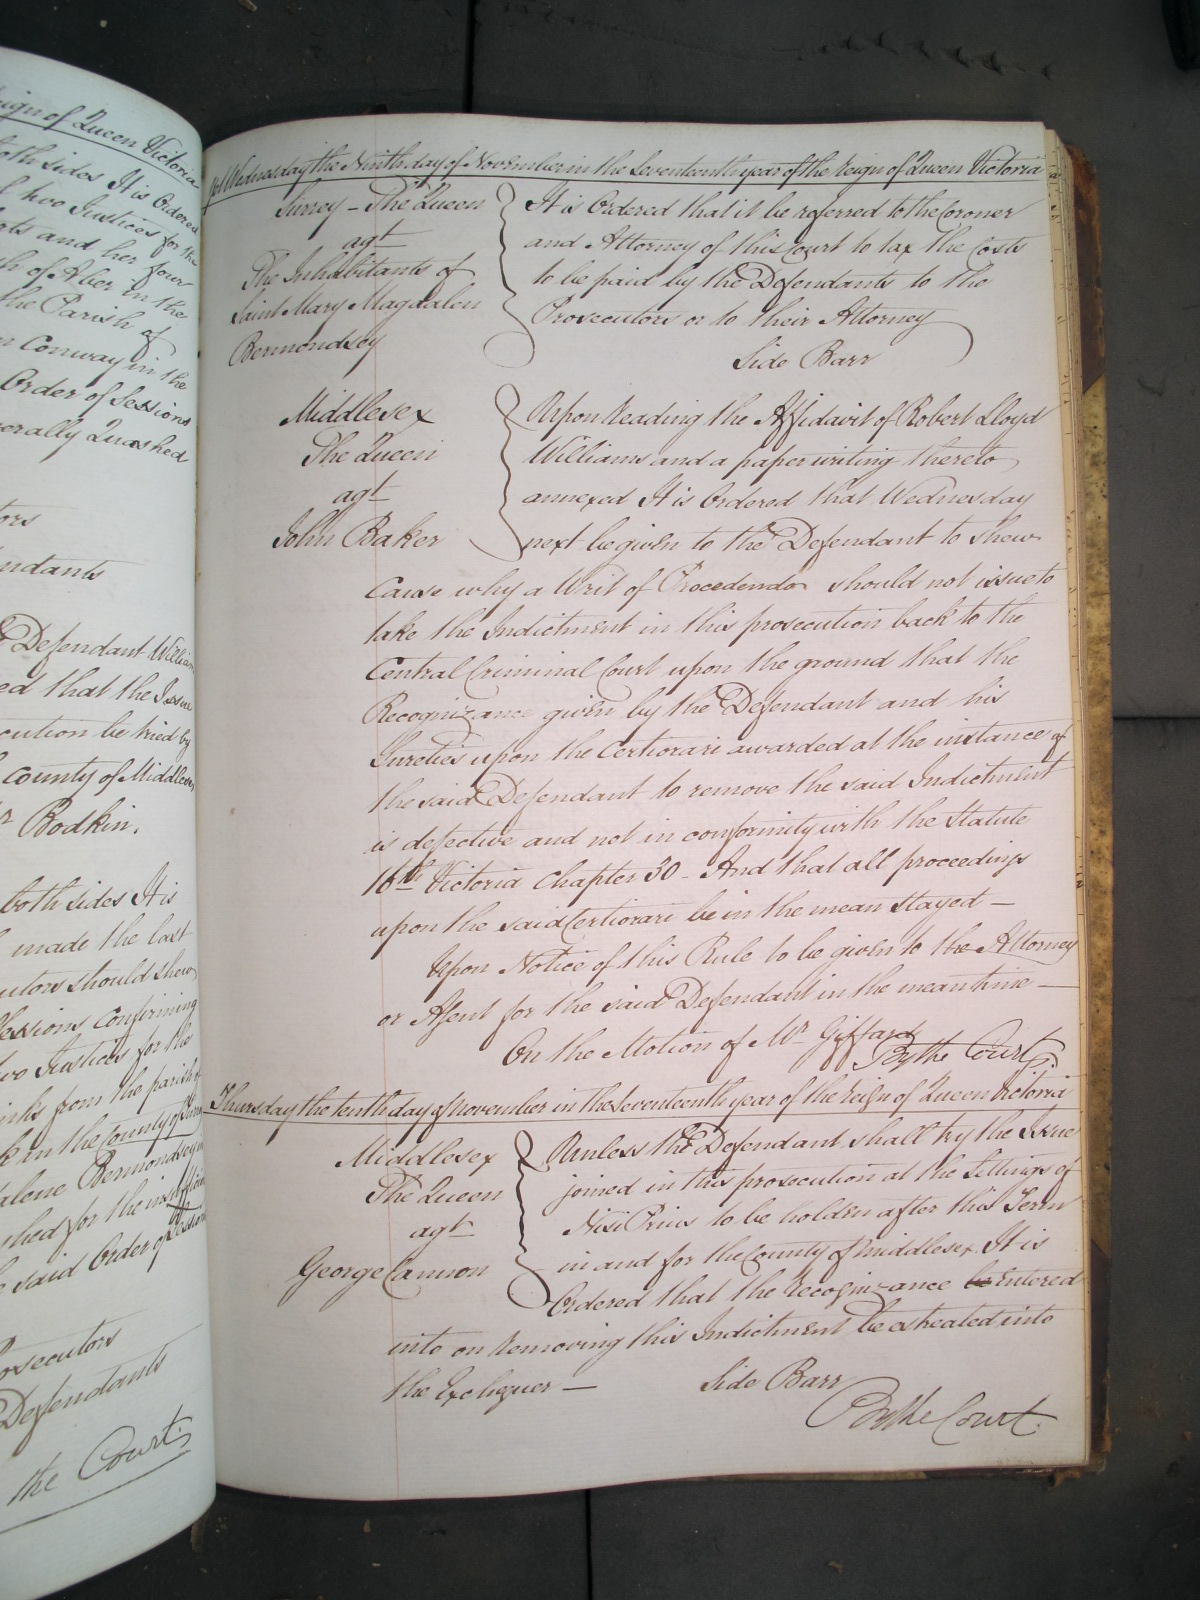 eign of Queen Victoria
both sides It is Ordered
two Justices for the
and her four
of Aber in the
the Parish of
Conway in the
Order of Sessions
erally Quashed
tors
ndants
Defendant William
ed that the Issue
cution be tried by
County of Middlesex
Bodkin.
both sides It is
made the last
utors should shew
Sessions confirming
two Justices for the
from the parish of
in the County of
Bermondsey
shed for the
said Order of Sessions
Prosecutors
Defendants
the Court.
Wednesday the Ninth day of November in the Seventeenth year of the Reign of Queen Victoria
Surrey – The Queen
agt
The Inhabitants of
Saint Mary Magdalen
Bermondsey
It is Ordered that it be referred to the Coroner
and Attorney of this Court to tax the Costs
to be paid by the Defendants to the
Prosecutors or to their Attorney
Side Barr
Middlesex
The Queen
agt
John Baker
Upon Reading the Affidavit of Robert Lloyd
Williams and a paper writing thereto
annexed It is Ordered that Wednesday
next be given to the Defendant to shew
Cause why a Writ of Procedendo should not issue to
take the Indictment in this prosecution back to the
Central Criminal Court upon the ground that the
Recognizance given by the Defendant and his
Sureties upon the Certiorari awarded at the instance of
the said Defendant to remove the said Indictment
is defective and not in conformity with the Statute
16th Victoria Chapter 30 – And that all proceedings
upon the said Certiorari be in the mean stayed –
Upon Notice of this Rule to be given to the Attorney
or Agent for the said Defendant in the mean time –
On the Motion of Mr Giffard
By the Court.
Thursday the tenth day of November in the Seventeenth year of the Reign of Queen Victoria
Middlesex
The Queen
agt
George Cannon
Unless the Defendant shall try the Issue
joined in this prosecution at the Sittings of
Nisi Prius to be holden after this Term
in and for the County of Middlesex It is
Ordered that the Recognizance be Entered
into on Removing this Indictment be estreated into
the Exchequer –
Side Barr
By the Court.